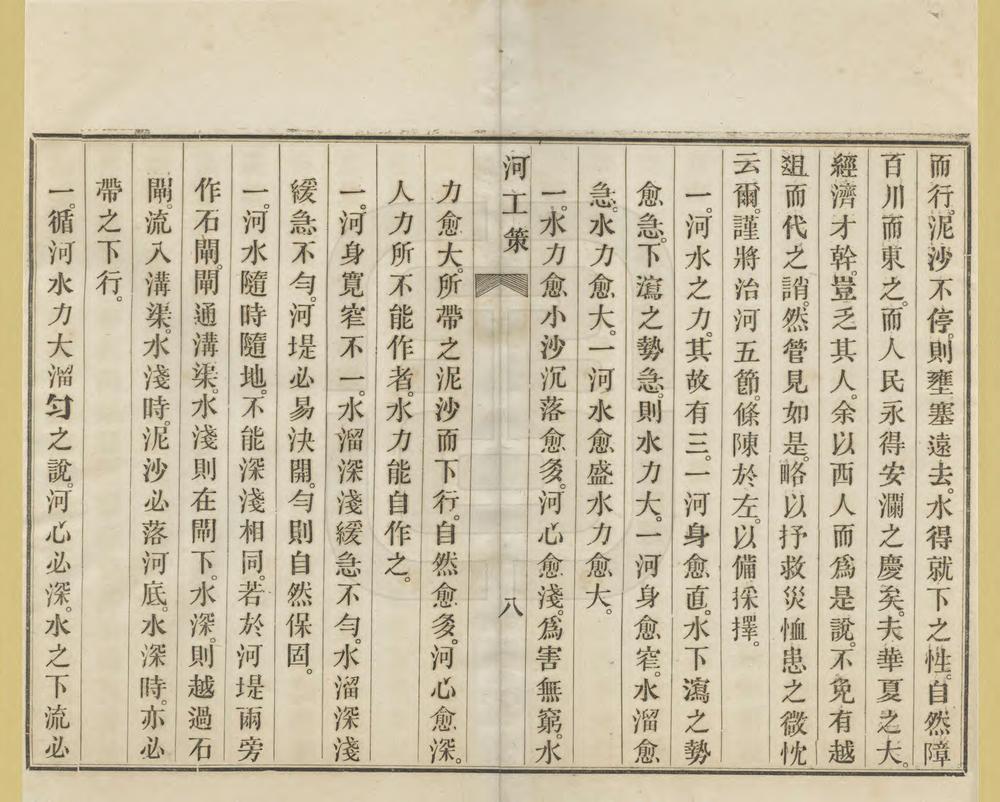 而行。泥沙不停。則壅塞遠去。水得就下之性。自然障
百川而東之。而人民永得安瀾之慶矣。夫華夏之大。
經濟才幹。豈乏其人。余以西人而爲是說。不免有越
俎而代之誚。然管見如是。略以抒救災恤患之微忱
云爾。謹將治河五節。條陳於左。以備採擇。
一。河水之力。其故有三。一河身愈直。水下瀉之勢
愈急。下瀉之勢急。則水力大。一河身愈窄。水溜愈
急。水力愈大。一河水愈盛水力愈大。
一。水力愈小沙沉落愈多。河心愈淺。爲害無窮。水
河工策
八
力愈大。所帶之泥沙而下行。自然愈多。河心愈深。
人力所不能作者。水力能自作之。
一。河身寬窄不一。水溜深淺緩急不勻。水溜深淺
緩急不勻。河堤必易決開。勻則自然保固。
一。河水隨時隨地。不能深淺相同。若於河堤兩旁
作石閘。閘通溝渠。水淺則在閘下。水深。則越過石
閘。流入溝渠。水淺時。泥沙必落河底。水深時。亦必
帶之下行。
一。循河水力大溜勻之說。河心必深。水之下流必